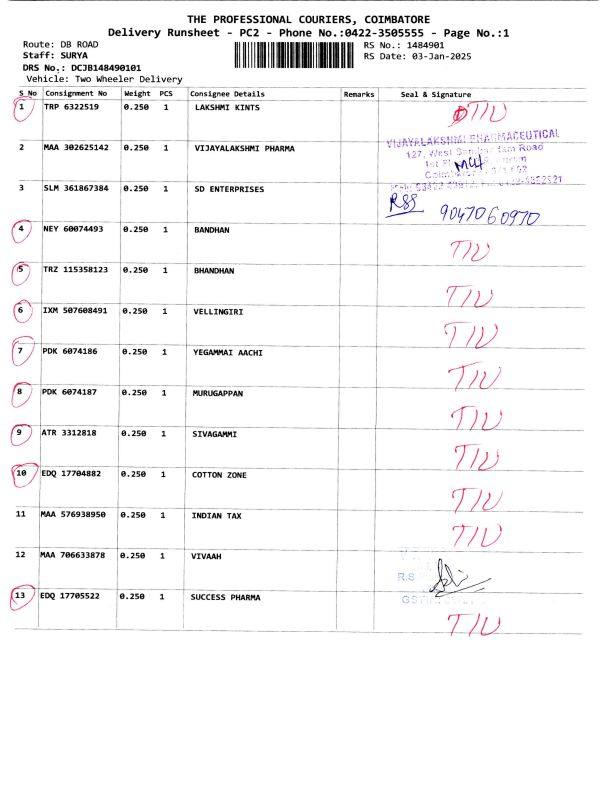 THE PROFESSIONAL COURIERS, COIMBATORE
Delivery Runsheet - PC2 - Phone No.:0422-3505555 - Page No.:1
Route: DB ROAD
RS No.: 1484901
Staff: SURYA
RS Date: 03-Jan-2025
DRS No.: DCJB148490101
Vehicle: Two Wheeler Delivery
S No Consignment No Weight PCS Consignee Details Remarks Seal & Signature
1 TRP 6322519 0.250 1 LAKSHMI KINTS T/U
2 MAA 302625142 0.250 1 VIJAYALAKSHMI PHARMA
VIJAYALAKSHMI PHARMACEUTICAL
127, West Road
3 SLM 361867384 0.250 1 SD ENTERPRISES
RSS 9047060970
4 NEY 60074493 0.250 1 BANDHAN T/U
5 TRZ 115358123 0.250 1 BHANDHAN T/U
6 IXM 507608491 0.250 1 VELLINGIRI T/U
7 PDK 6074186 0.250 1 YEGAMMAI AACHI T/U
8 PDK 6074187 0.250 1 MURUGAPPAN T/U
9 ATR 3312818 0.250 1 SIVAGAMMI T/U
10 EDQ 17704882 0.250 1 COTTON ZONE T/U
11 MAA 576938950 0.250 1 INDIAN TAX T/U
12 MAA 706633878 0.250 1 VIVAAH
R.S
13 EDQ 17705522 0.250 1 SUCCESS PHARMA T/U